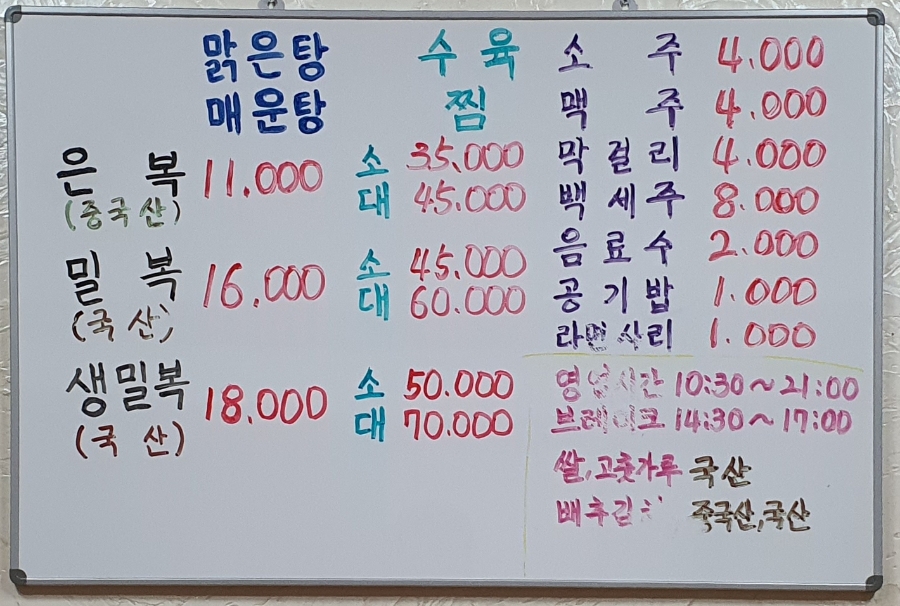 맑은탕 수육
매운탕 찜
은복 11.000 소 35.000
(중국산) 대 45.000
밀복 16.000 소 45.000
(국산) 대 60.000
생밀복 18.000 소 50.000
(국산) 대 70.000
소주 4.000
맥주 4.000
막걸리 4.000
백세주 8.000
음료수 2.000
공기밥 1.000
라면사리 1.000
영업시간 10:30~21:00
브레이크 14:30~17:00
쌀,고춧가루 국산
배추김치 중국산,국산